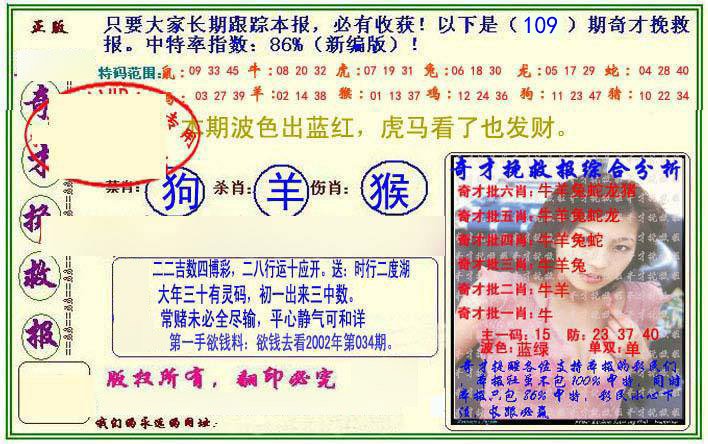 正版
只要大家长期跟踪本报，必有收获！以下是（109）期奇才挽救
报。中特率指数：86%（新编版）！
特码范围: 鼠：09 33 45 牛：08 20 32 虎：07 19 31 兔：06 18 30 龙：05 17 29 蛇：04 28 40
03 27 39 羊：02 14 38 猴：01 13 37 鸡：12 24 36 狗：11 23 47 猪：10 22 34
本期波色出蓝红，虎马看了也发财。
专用
奇才
救报
禁肖：狗 杀肖：羊 伤肖：猴
二二吉数四博彩，二八行运十应开。送：时行二度湖
大年三十有灵码，初一出来三中数。
常赌未必全尽输，平心静气可和详
第一手欲钱料：欲钱去看2002年第034期。
版权所有，翻印必究
我们的永远的网址：
奇才挽救报综合分析
奇才批六肖：牛羊兔蛇龙猪
奇才批五肖：牛羊兔蛇龙
奇才批四肖：牛羊兔蛇
奇才批三肖：牛羊兔
奇才批二肖：牛羊
奇才批一肖：牛
主一码：15 防：23 37 40
波色：蓝绿 单双：单
奇才提醒各位支持本报的彩民们
，本报社虽不包100%中特，但时
本报只包86%中特，彩民小心下
注，长跟必赢